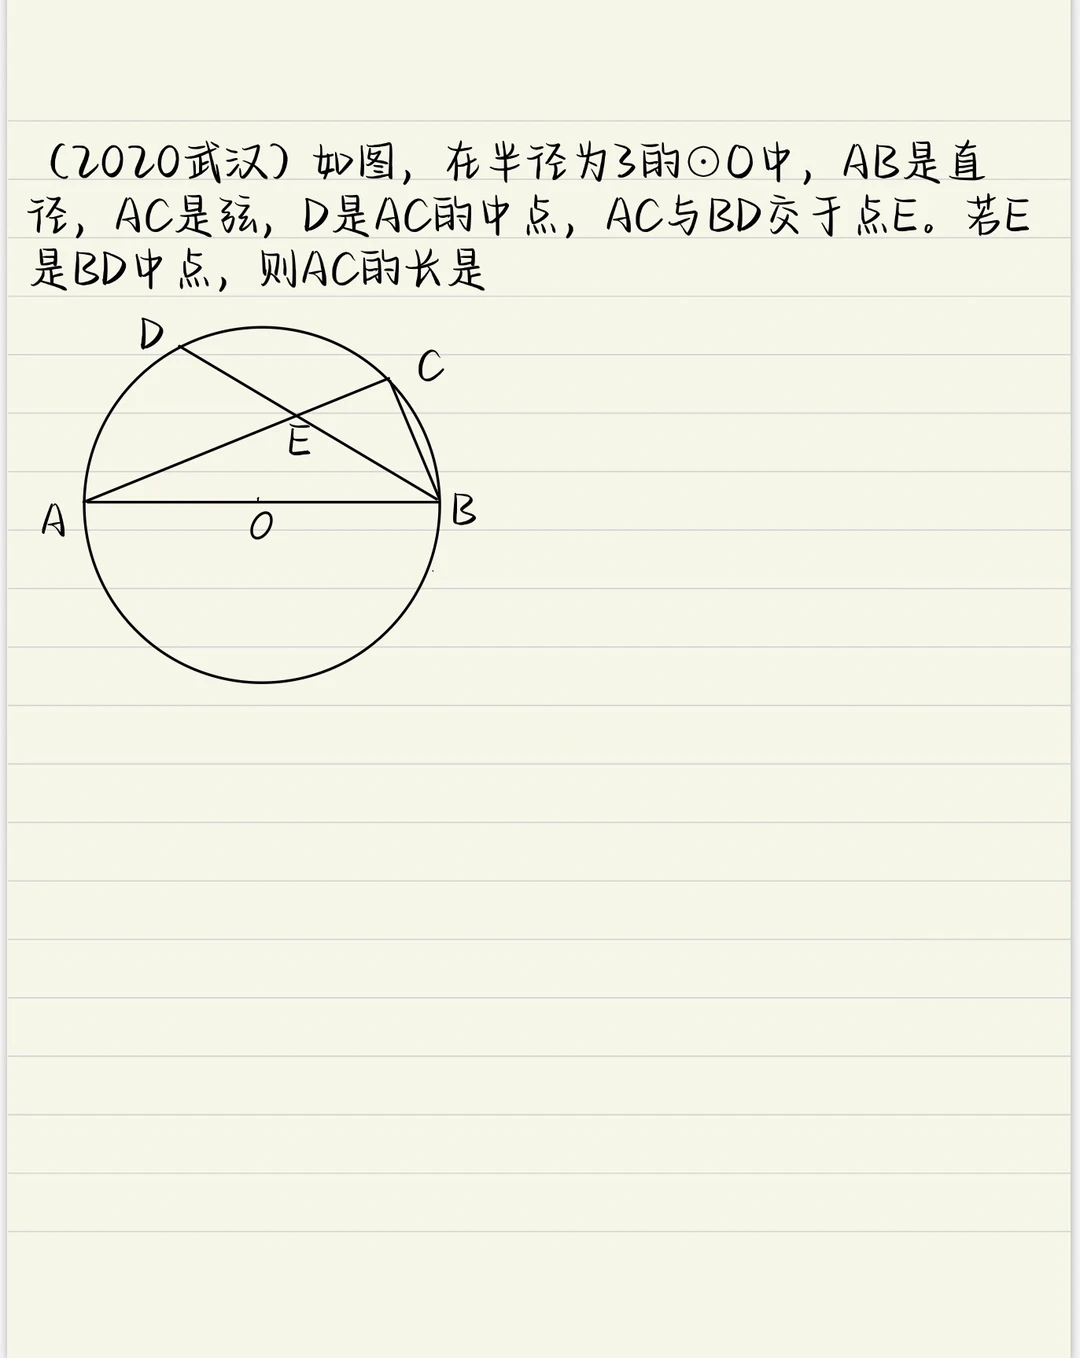 （2020武汉）如图，在半径为3的⊙O中，AB是直
径，AC是弦，D是AC的中点，AC与BD交于点E。若E
是BD中点，则AC的长是
D
C
E
A
O
B